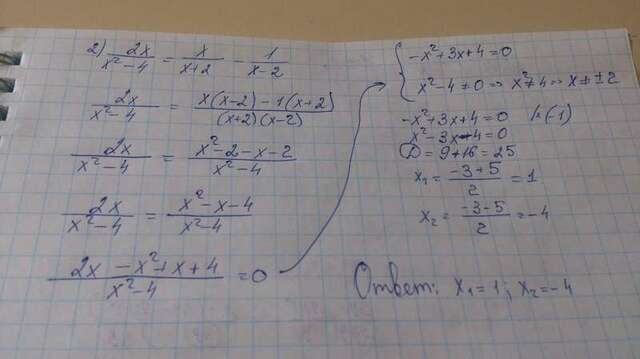 2) 2x/(x²-4) = x/(x+2) - 1/(x-2)
2x/(x²-4) = (x(x-2) - 1(x+2))/((x+2)(x-2))
2x/(x²-4) = (x²-2-x-2)/(x²-4)
2x/(x²-4) = (x²-x-4)/(x²-4)
(2x-x²+x+4)/(x²-4) = 0
{ -x²+3x+4=0
x²-4≠0 => x²≠4 => x≠±2
-x²+3x+4=0 |·(-1)
x²-3x-4=0
D = 9+16 = 25
x₁ = (-3+5)/2 = 1
x₂ = (-3-5)/2 = -4
Ответ: x₁=1; x₂=-4